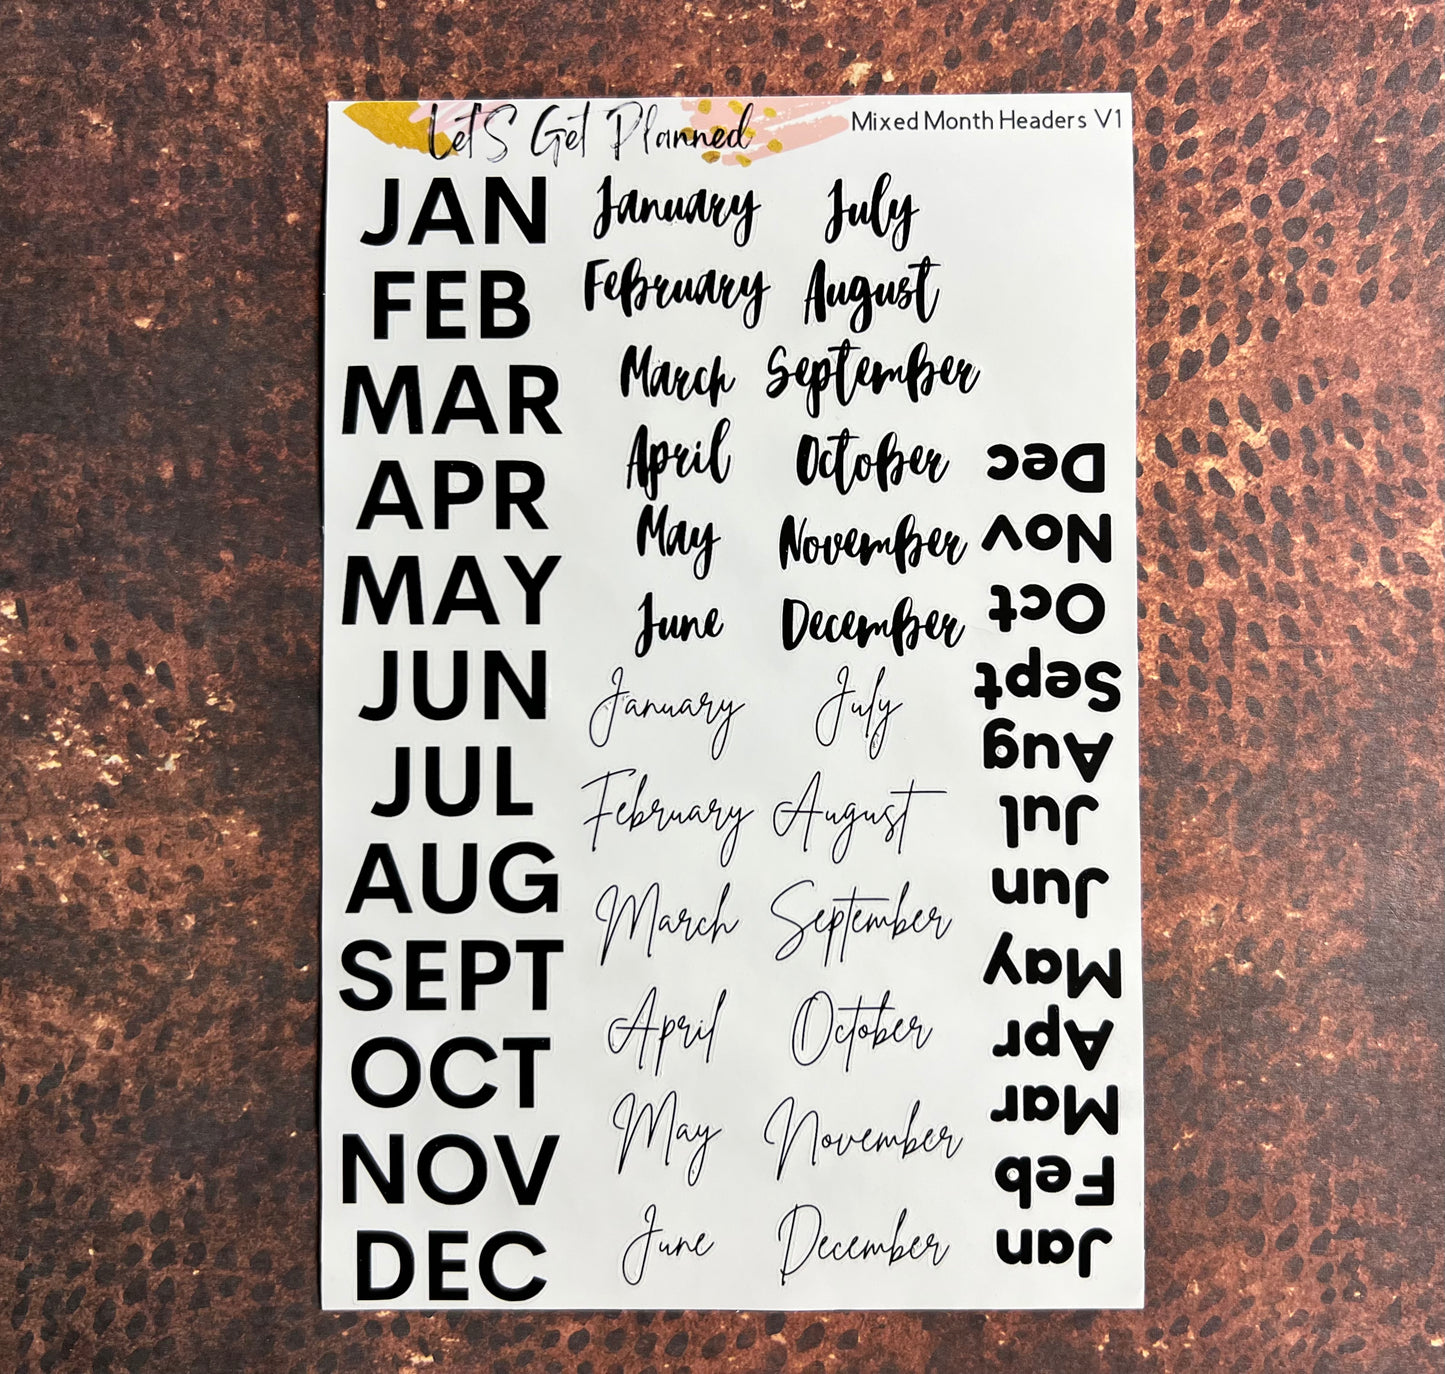 Let's Get Planned
Mixed Month Headers V1
JAN
FEB
MAR
APR
MAY
JUN
JUL
AUG
SEPT
OCT
NOV
DEC
January
February
March
April
May
June
July
August
September
October
November
December
January
February
March
April
May
June
July
August
September
October
November
December
Jan
Feb
Mar
Apr
May
Jun
Jul
Aug
Sept
Oct
Nov
Dec